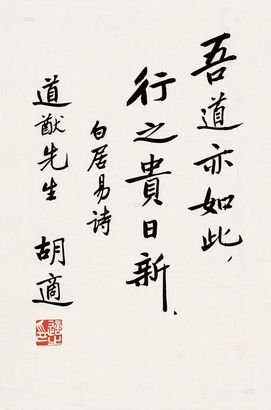 吾道亦如此，
行之貴日新．
白居易詩
道猷先生
胡適